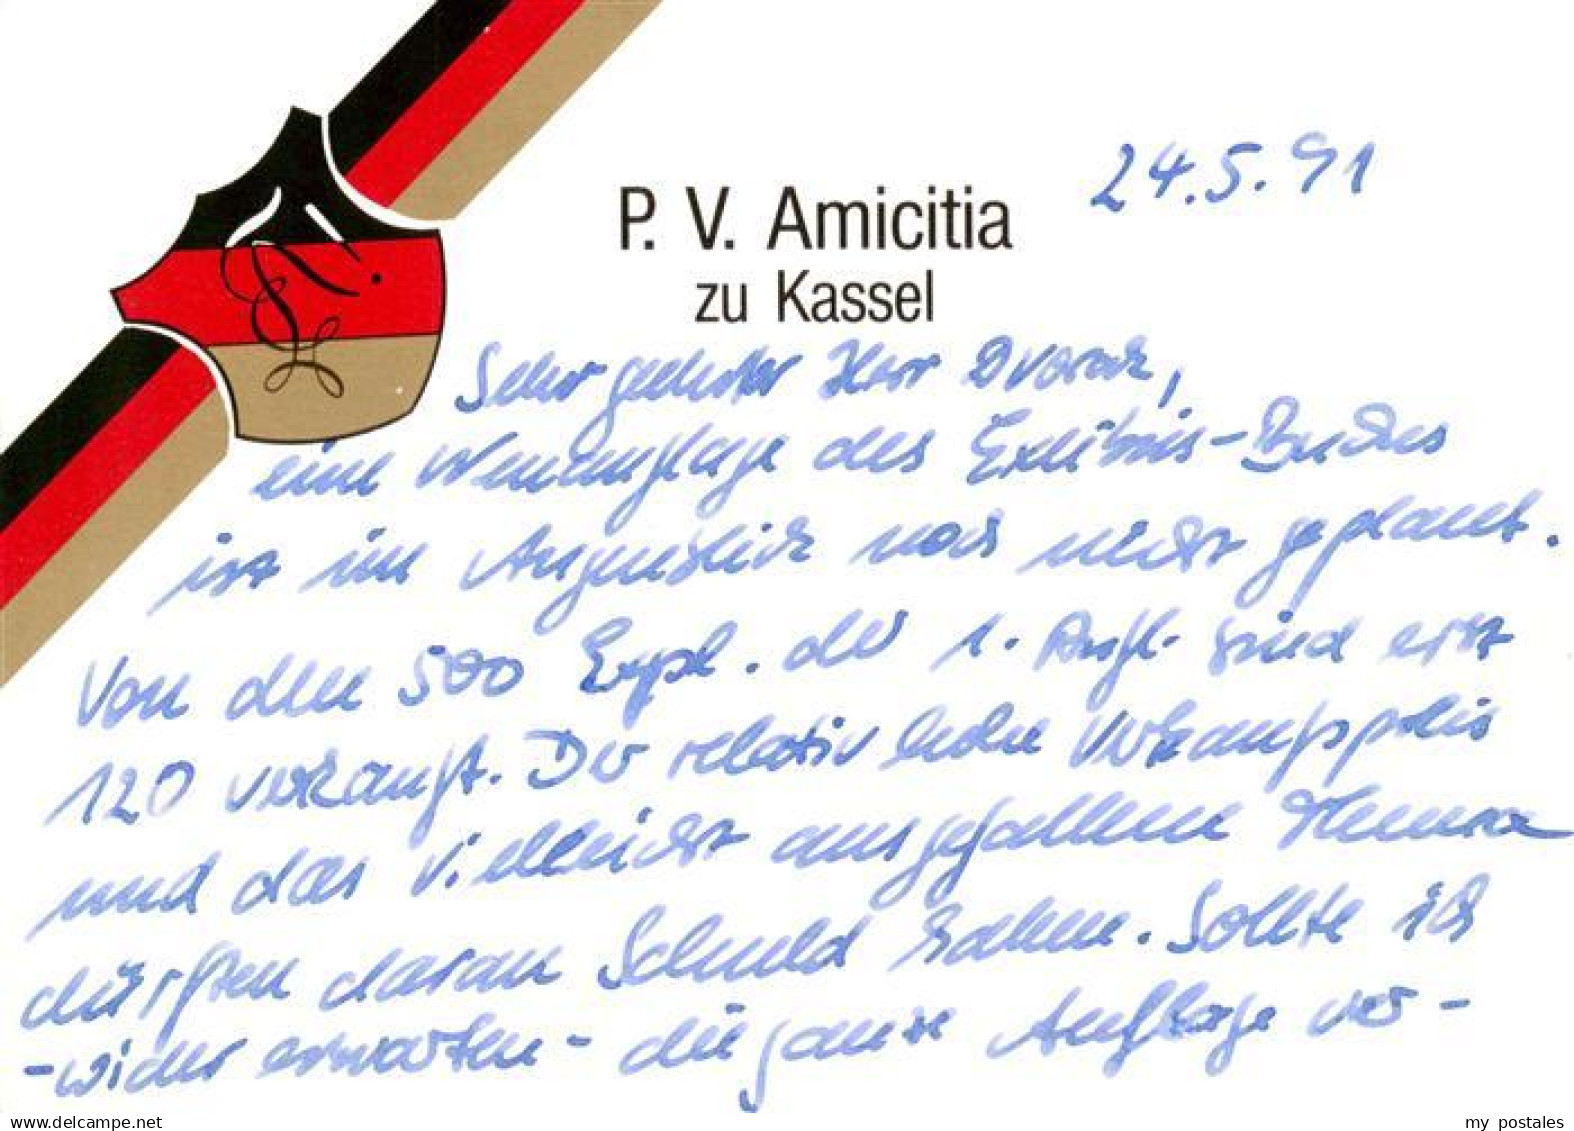 24.5.91
P. V. Amicitia
zu Kassel
Sehr geehrter Herr Dvorak,
eine Neuauflage des Exlibris-Buches
ist im Augenblick noch nicht geplant.
Von den 500 Expl. der 1. Aufl. sind erst
120 verkauft. Der relativ hohe Verkaufspreis
und das vielleicht ausgefallene Thema
dürften daran Schuld haben. Sollte ich
-wider erwarten- die ganze Auflage ver-
www.delcampe.net
my_postales